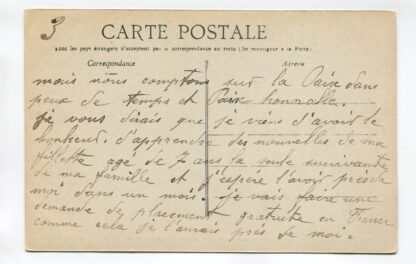 3
CARTE POSTALE
Tous les pays étrangers n'acceptent pas la correspondance au recto (Se renseigner à la Poste)
Correspondance
Adresse
mais nous comptons sur la Paix dans
peux de temps et Paix honorable.
je vous dirais que je viens d'avoir le
bonheur d'apprendre des nouvelles de ma
fillette agé de 7 ans la seule survivante
de ma famille et j'espére l'avoir près de
moi dans un mois. je vais faire une
demande de placement gratuite en France
comme cela je l'aurais près de moi.